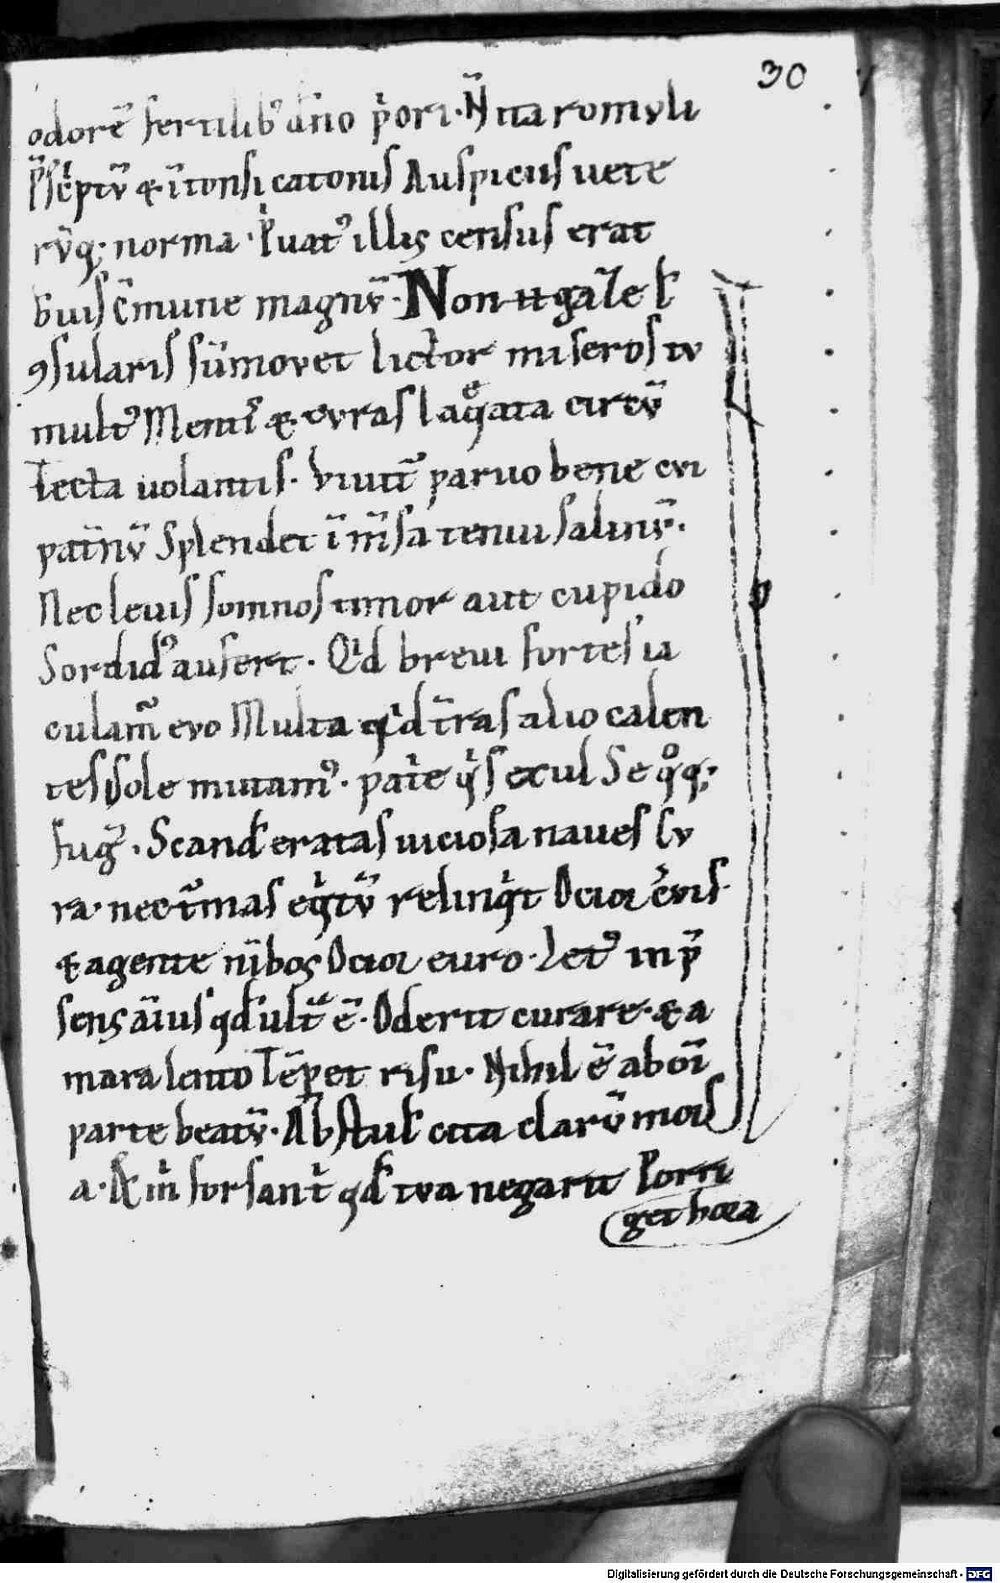 30
odorē fertilib᷒ dn̄o p̄ori · N̄ ita romuli
p̄sc̄ptū & ītonsi catonis Auspiciis uete
rūq; norma · P̍uat᷒ illis census erat
b̍uis C̄mune magnū · Non ū gal̄e ł
ꝯsularis sūmovet lictor miseros tu
mult᷒ Mentis & curas laq̊ata circū
Tecta uolantis · Viuit᷒ paruo bene cui
pat̄nū Splendet ī m̄sa tenui salinū ·
Nec leuis somnos timor aut cupido
Sordid᷒ aufert · Q̍d breui fortes ia
culam᷒ evo Multa q̍d t̄ras alio calen
tes Sole mutam᷒ · pat̍e q̍s exul Se q̊q;
fug̍ · Scand̄ eratas uiciosa naues Cu
ra · nec t̄mas eq̍tū relinq̍t Ocior c̄uis ·
& agente nībos Ocior euro · Let᷒ in p̄
sens aīus qd̄ ult̄ ē · Oderit curare · & a
mara lento Tēp̄et risu · Nihil ē ab oī
parte beatū · Abstulit cita clarū mors
a · & m̍ forsan t̍ qd̄ tua negarit Porri
get hora
Digitalisierung gefördert durch die Deutsche Forschungsgemeinschaft - DFG